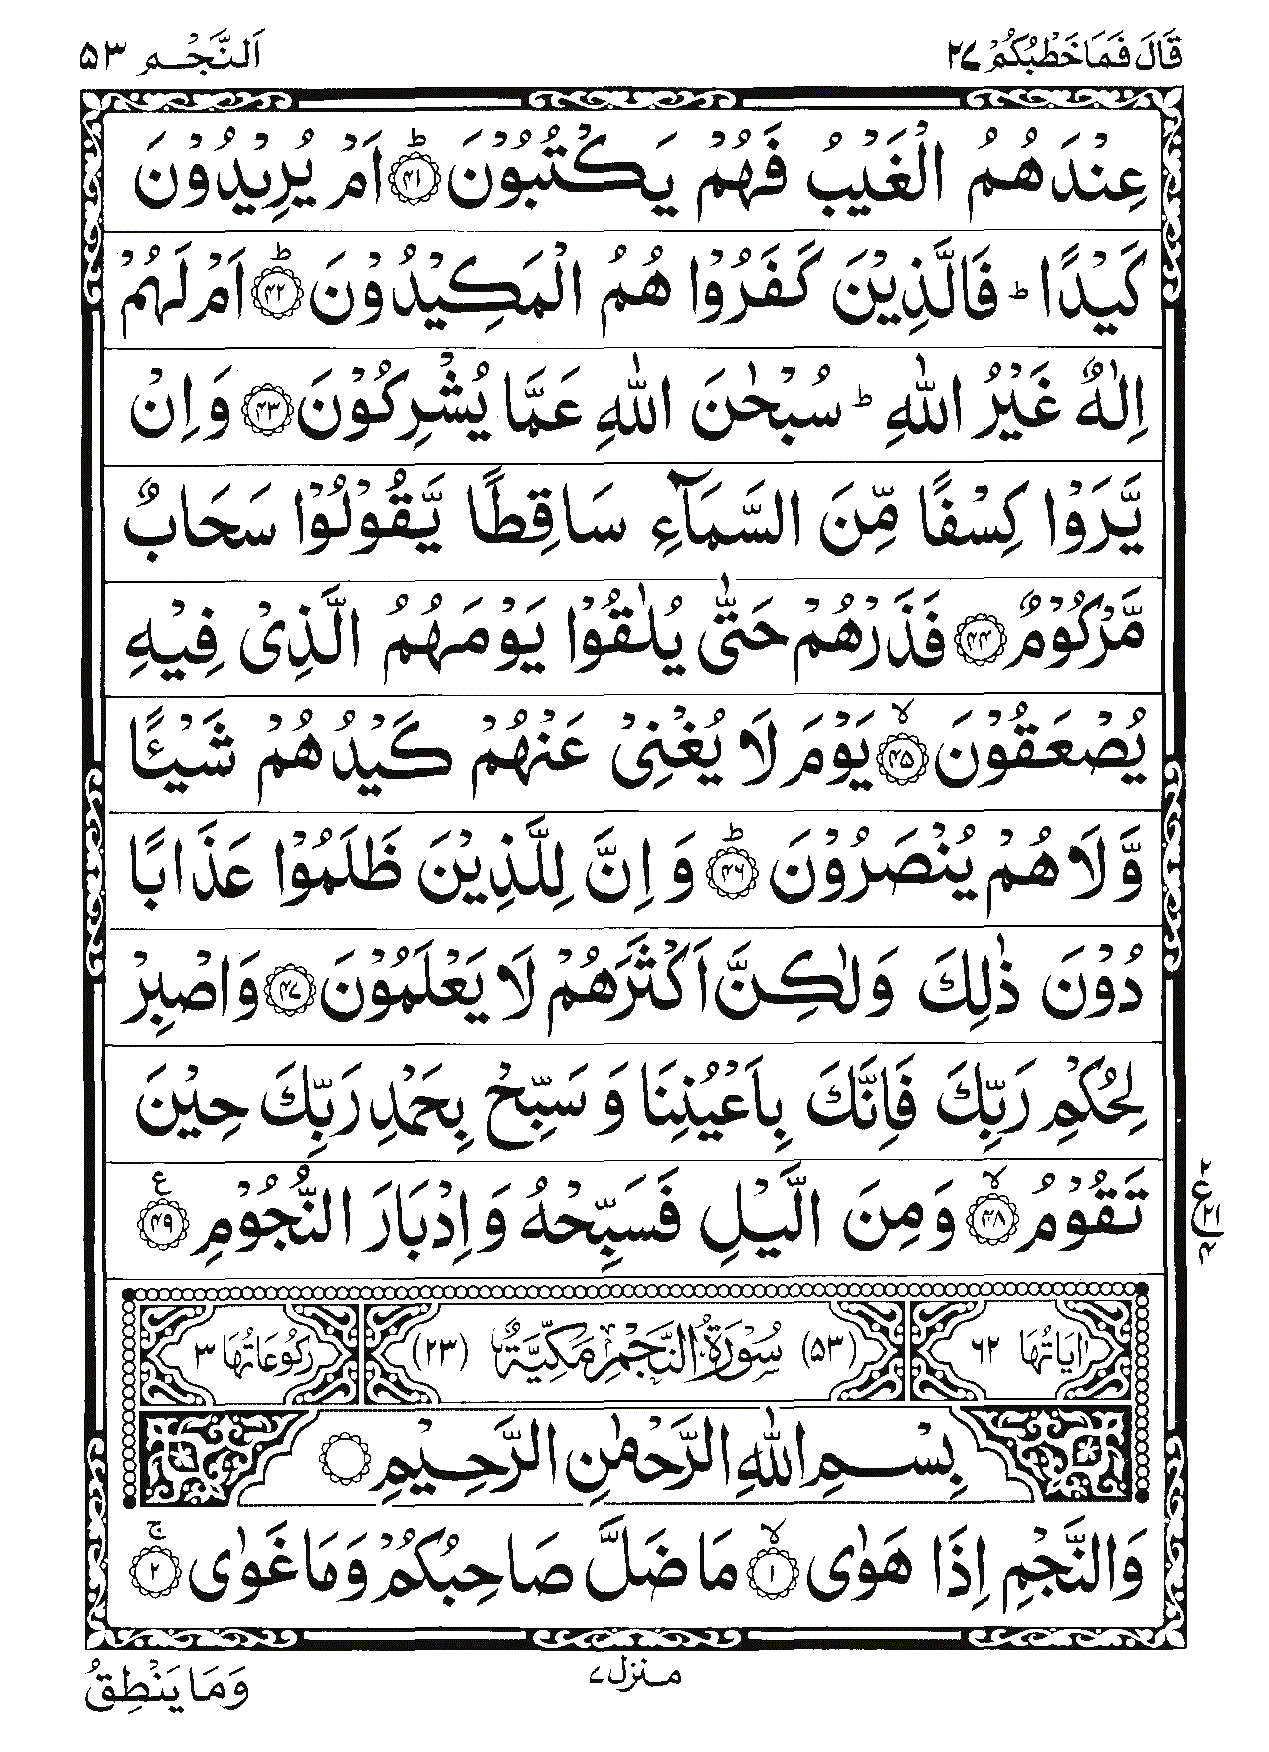 قَالَ فَمَا خَطْبُكُمْ ٢٧
اَلنَّجْم ٥٣
عِنْدَهُمُ الْغَيْبُ فَهُمْ يَكْتُبُوْنَ ؕ﴿۴۱﴾ اَمْ يُرِيْدُوْنَ
كَيْدًا ؕ فَالَّذِيْنَ كَفَرُوْا هُمُ الْمَكِيْدُوْنَ ؕ﴿۴۲﴾ اَمْ لَهُمْ
اِلٰهٌ غَيْرُ اللّٰهِ ؕ سُبْحٰنَ اللّٰهِ عَمَّا يُشْرِكُوْنَ ﴿۴۳﴾ وَ اِنْ
يَّرَوْا كِسْفًا مِّنَ السَّمَآءِ سَاقِطًا يَّقُوْلُوْا سَحَابٌ
مَّرْكُوْمٌ ﴿۴۴﴾ فَذَرْهُمْ حَتّٰى يُلٰقُوْا يَوْمَهُمُ الَّذِىْ فِيْهِ
يُصْعَقُوْنَ ۙ﴿۴۵﴾ يَوْمَ لَا يُغْنِىْ عَنْهُمْ كَيْدُهُمْ شَيْـًٔا
وَّلَا هُمْ يُنْصَرُوْنَ ؕ﴿۴۶﴾ وَ اِنَّ لِلَّذِيْنَ ظَلَمُوْا عَذَابًا
دُوْنَ ذٰلِكَ وَلٰكِنَّ اَكْثَرَهُمْ لَا يَعْلَمُوْنَ ﴿۴۷﴾ وَاصْبِرْ
لِحُكْمِ رَبِّكَ فَاِنَّكَ بِاَعْيُنِنَا وَ سَبِّحْ بِحَمْدِ رَبِّكَ حِيْنَ
تَقُوْمُ ۙ﴿۴۸﴾ وَمِنَ الَّيْلِ فَسَبِّحْهُ وَ اِدْبَارَ النُّجُوْمِ ﴿۴۹﴾ ع
٢ ع ٢١ ٤
اٰيَاتُهَا ٦٢
(٥٣) سُوْرَةُ النَّجْمِ مَكِّيَّةٌ (٢٣)
رُكُوْعَاتُهَا ٣
بِسْمِ اللّٰهِ الرَّحْمٰنِ الرَّحِيْمِ
وَالنَّجْمِ اِذَا هَوٰى ۙ﴿۱﴾ مَا ضَلَّ صَاحِبُكُمْ وَمَا غَوٰى ۚ﴿۲﴾
منزل ٧
وَمَا يَنْطِقُ